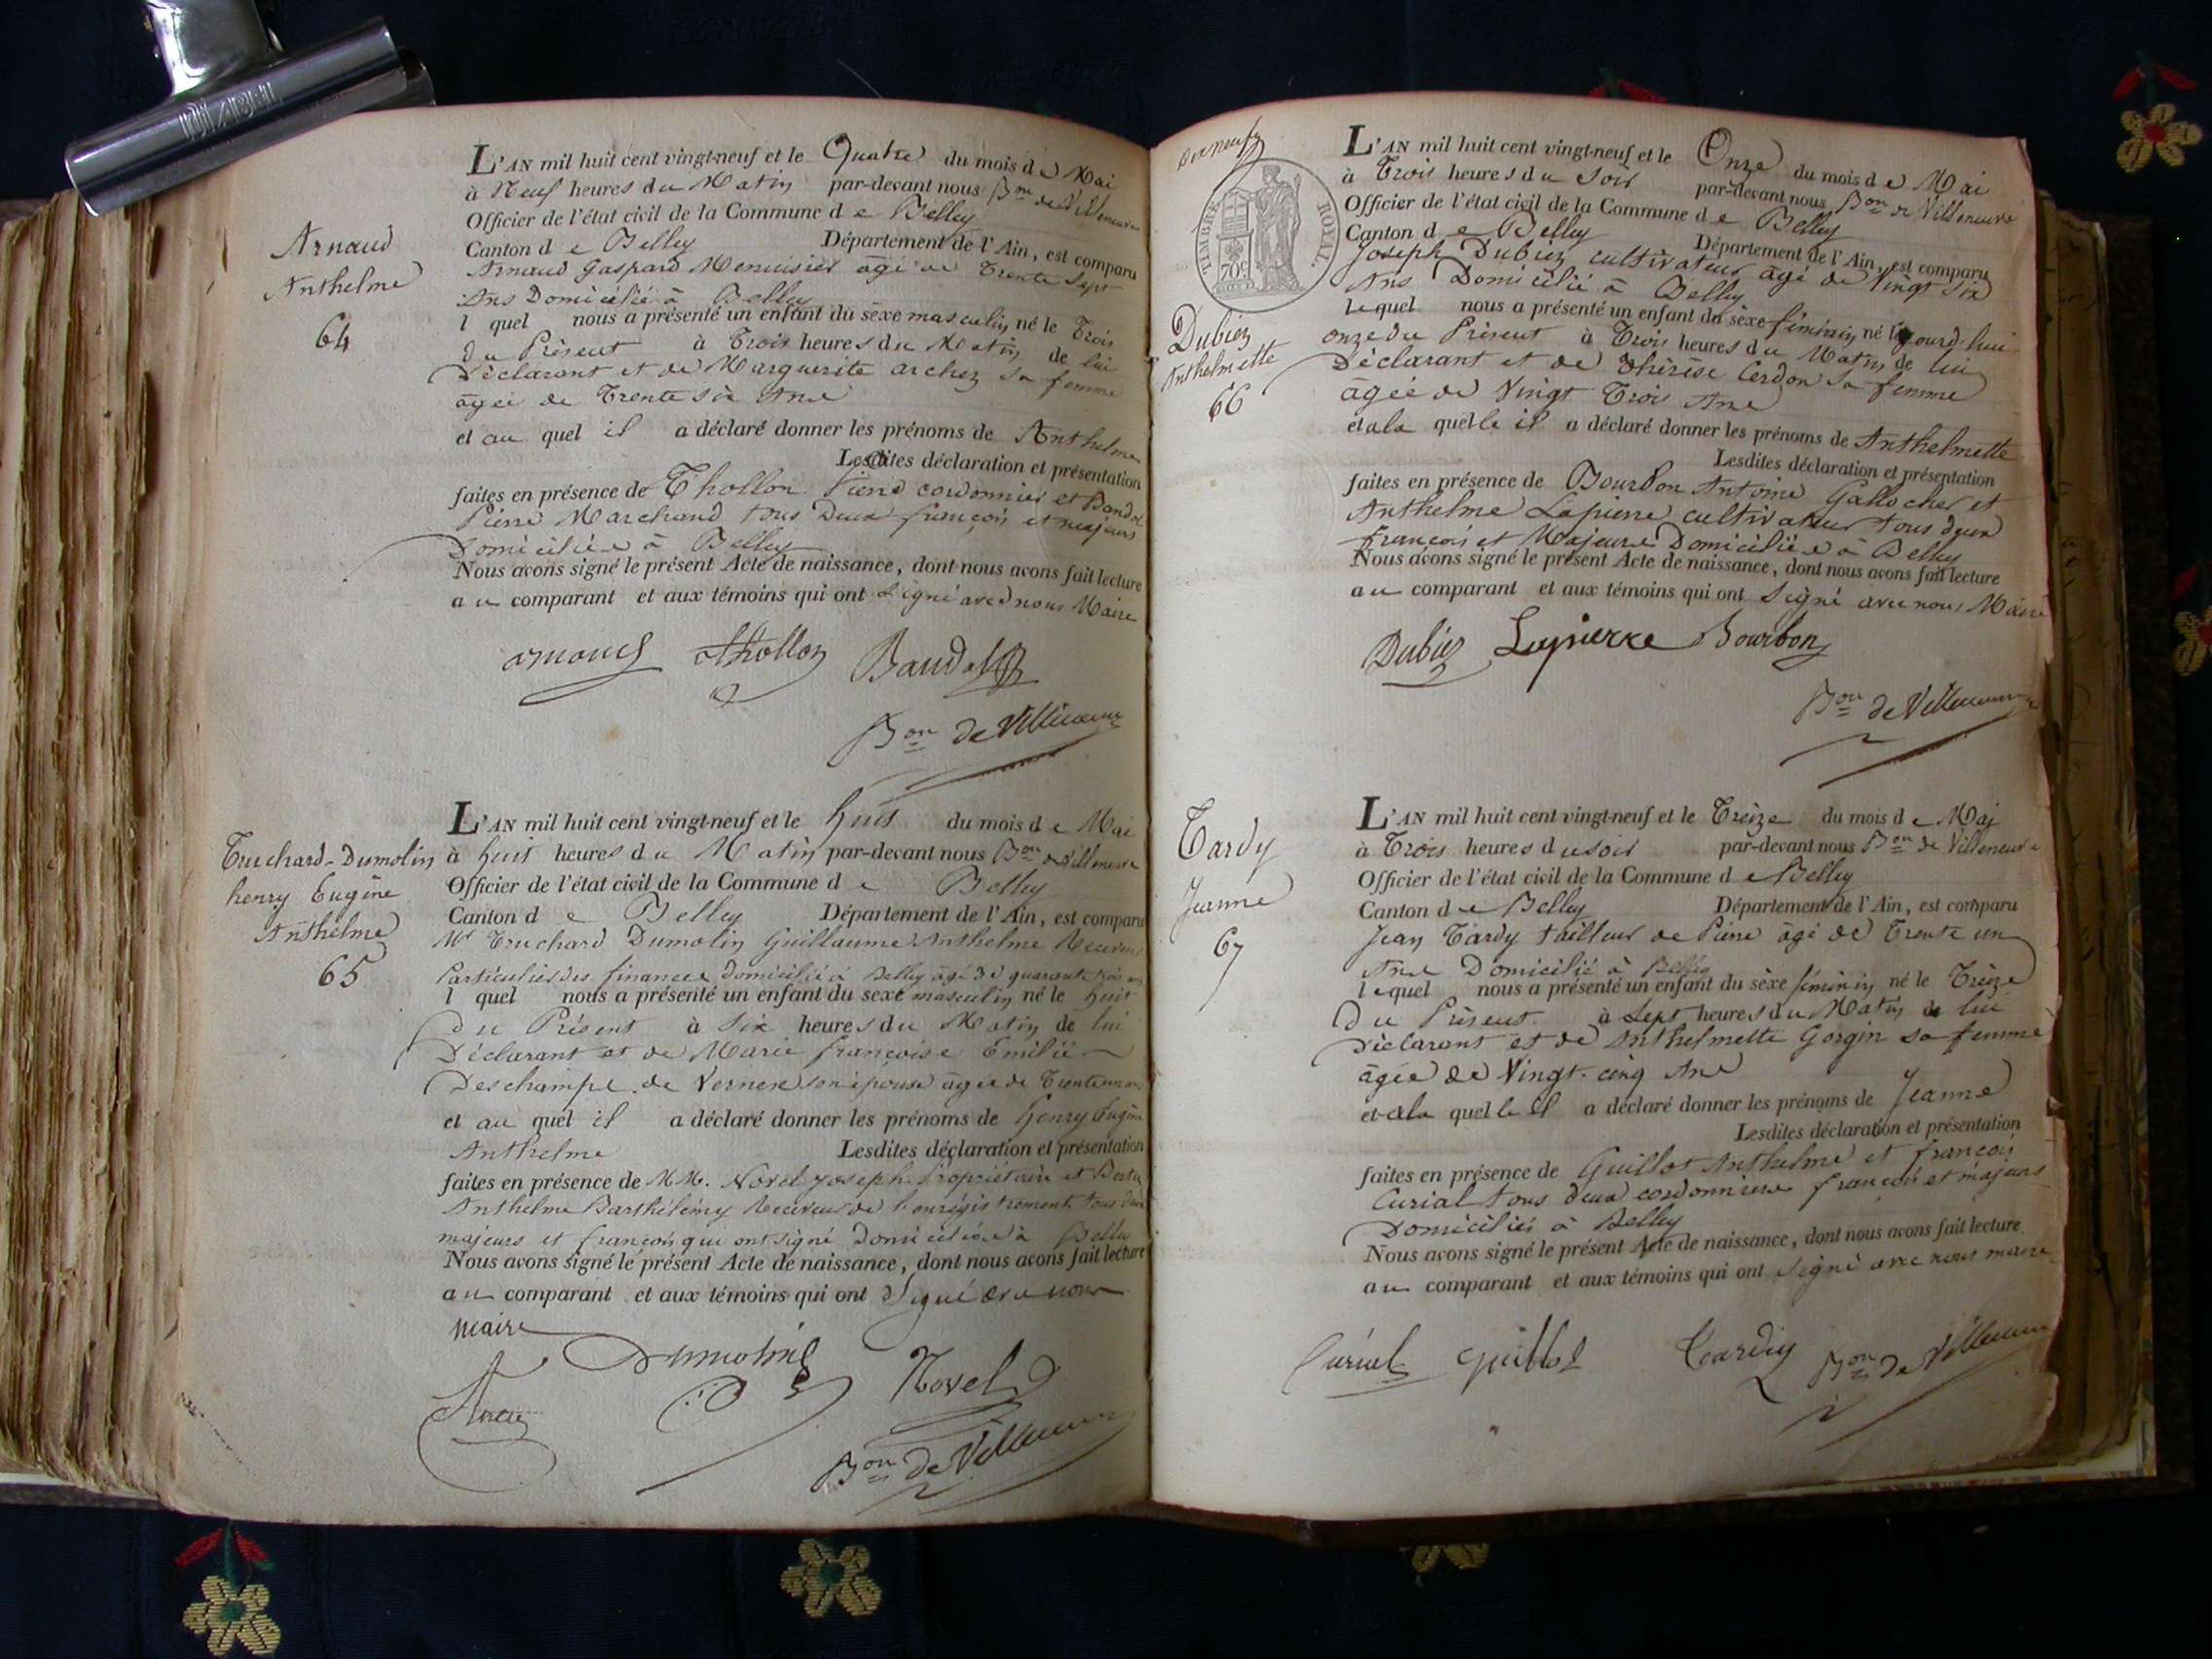 DIABEL
Arnaud
Anthelme
64
L'AN mil huit cent vingt-neuf et le Quatre du mois de Mai
à Neuf heures du Matin par-devant nous Bon de Villeneuve
Officier de l'état civil de la Commune de Belley
Canton de Belley Département de l'Ain, est comparu
Arnaud Gaspard Menuisier âgé de Trente Sept
Ans Domicilié à Belley
l quel nous a présenté un enfant du sèxe masculin né le Trois
du Présent à Trois heures du Matin de lui
Déclarant et de Marguerite archez Sa femme
âgée de Trente Six Ans
et au quel il a déclaré donner les prénoms de Anthelme
Lesdites déclaration et présentation
faites en présence de Thollon Pierre cordonnier et
Pierre Marchand tous Deux françois et majeurs
Domiciliés à Belley
Nous avons signé le présent Acte de naissance, dont nous avons fait lecture
au comparant et aux témoins qui ont Signé avec nous Maire
arnaud thollon
Bon de Villeneuve
Truchard-Dumolin
henry Eugêne
Anthelme
65
L'AN mil huit cent vingt-neuf et le huit du mois de Mai
à huit heures du Matin par-devant nous Bon de Villeneuve
Officier de l'état civil de la Commune de Belley
Canton de Belley Département de l'Ain, est comparu
Mr Truchard Dumolin Guillaume Anthelme Receveur
Particulier des finances domicilié à Belley âgé de quarante trois ans
l quel nous a présenté un enfant du sèxe masculin né le huit
du Présent à Six heures du Matin de lui
Déclarant et de Marie françoise Emilie
Deschamps de Vernex son épouse âgée de Trente un ans
et au quel il a déclaré donner les prénoms de henry Eugêne
Anthelme Lesdites déclaration et présentation
faites en présence de MM. Novel Joseph Propriétaire et
Anthelme Barthélémy Receveur de l'enrégistrement tous deux
majeurs et françois qui ont signé Domiciliés à Belley
Nous avons signé le présent Acte de naissance, dont nous avons fait lecture
au comparant et aux témoins qui ont Signé avec nous
maire
Dumolin Novel
Bon de Villeneuve
TIMBRE ROYAL.
70c
Dubiez
Anthelmette
66
L'AN mil huit cent vingt-neuf et le Onze du mois de Mai
à Trois heures du Soir par-devant nous Bon de Villeneuve
Officier de l'état civil de la Commune de Belley
Canton de Belley Département de l'Ain, est comparu
Joseph Dubiez cultivateur âgé de Vingt Six
Ans Domicilié à Belley
lequel nous a présenté un enfant du sèxe féminin né
onze du Présent à Trois heures du Matin de lui
Déclarant et de thérèse Cerdon Sa femme
âgée de Vingt Trois Ans
et à la quelle il a déclaré donner les prénoms de Anthelmette
Lesdites déclaration et présentation
faites en présence de Bourbon Antoine Gallocher et
Anthelme Lapierre cultivateur tous deux
françois et Majeurs Domiciliés à Belley
Nous avons signé le présent Acte de naissance, dont nous avons fait lecture
au comparant et aux témoins qui ont Signé avec nous Maire
Dubiez Lapierre Bourbon
Bon de Villeneuve
Tardy
Jeanne
67
L'AN mil huit cent vingt-neuf et le Treize du mois de Mai
à Trois heures du soir par-devant nous Bon de Villeneuve
Officier de l'état civil de la Commune de Belley
Canton de Belley Département de l'Ain, est comparu
Jean Tardy tailleur de Pierre âgé de Trente un
Ans Domicilié à Belley
lequel nous a présenté un enfant du sèxe féminin né le Trèize
Du Présent à Sept heures du Matin de lui
Déclarant et de Anthelmette Gorgin sa femme
âgée de Vingt-cinq Ans
et à la quelle il a déclaré donner les prénoms de Jeanne
Lesdites déclaration et présentation
faites en présence de Guillot Anthelme et françois
Curial tous deux cordonniers françois et majeurs
Domiciliés à Belley
Nous avons signé le présent Acte de naissance, dont nous avons fait lecture
au comparant et aux témoins qui ont Signé avec nous maire
Curial guillot Tardy Bon de Villeneuve